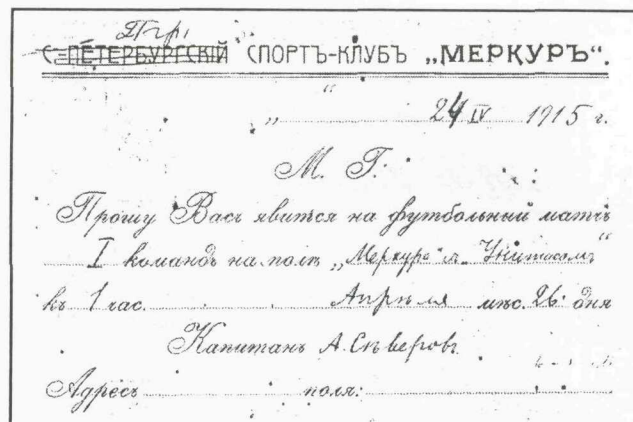 Птгр.
С=ПЕТЕРБУРГСКІЙ СПОРТЪ-КЛУБЪ „МЕРКУРЪ“.
„ “ 24 IV 1915 г.
М. Г.
Прошу Васъ явится на футбольный матчъ
I командъ на полѣ „Меркура“ съ „Унитасомъ“
къ 1 час. Апрѣля мѣс. 26 дня
Капитанъ А. Сѣверовъ.
Адресъ поля: